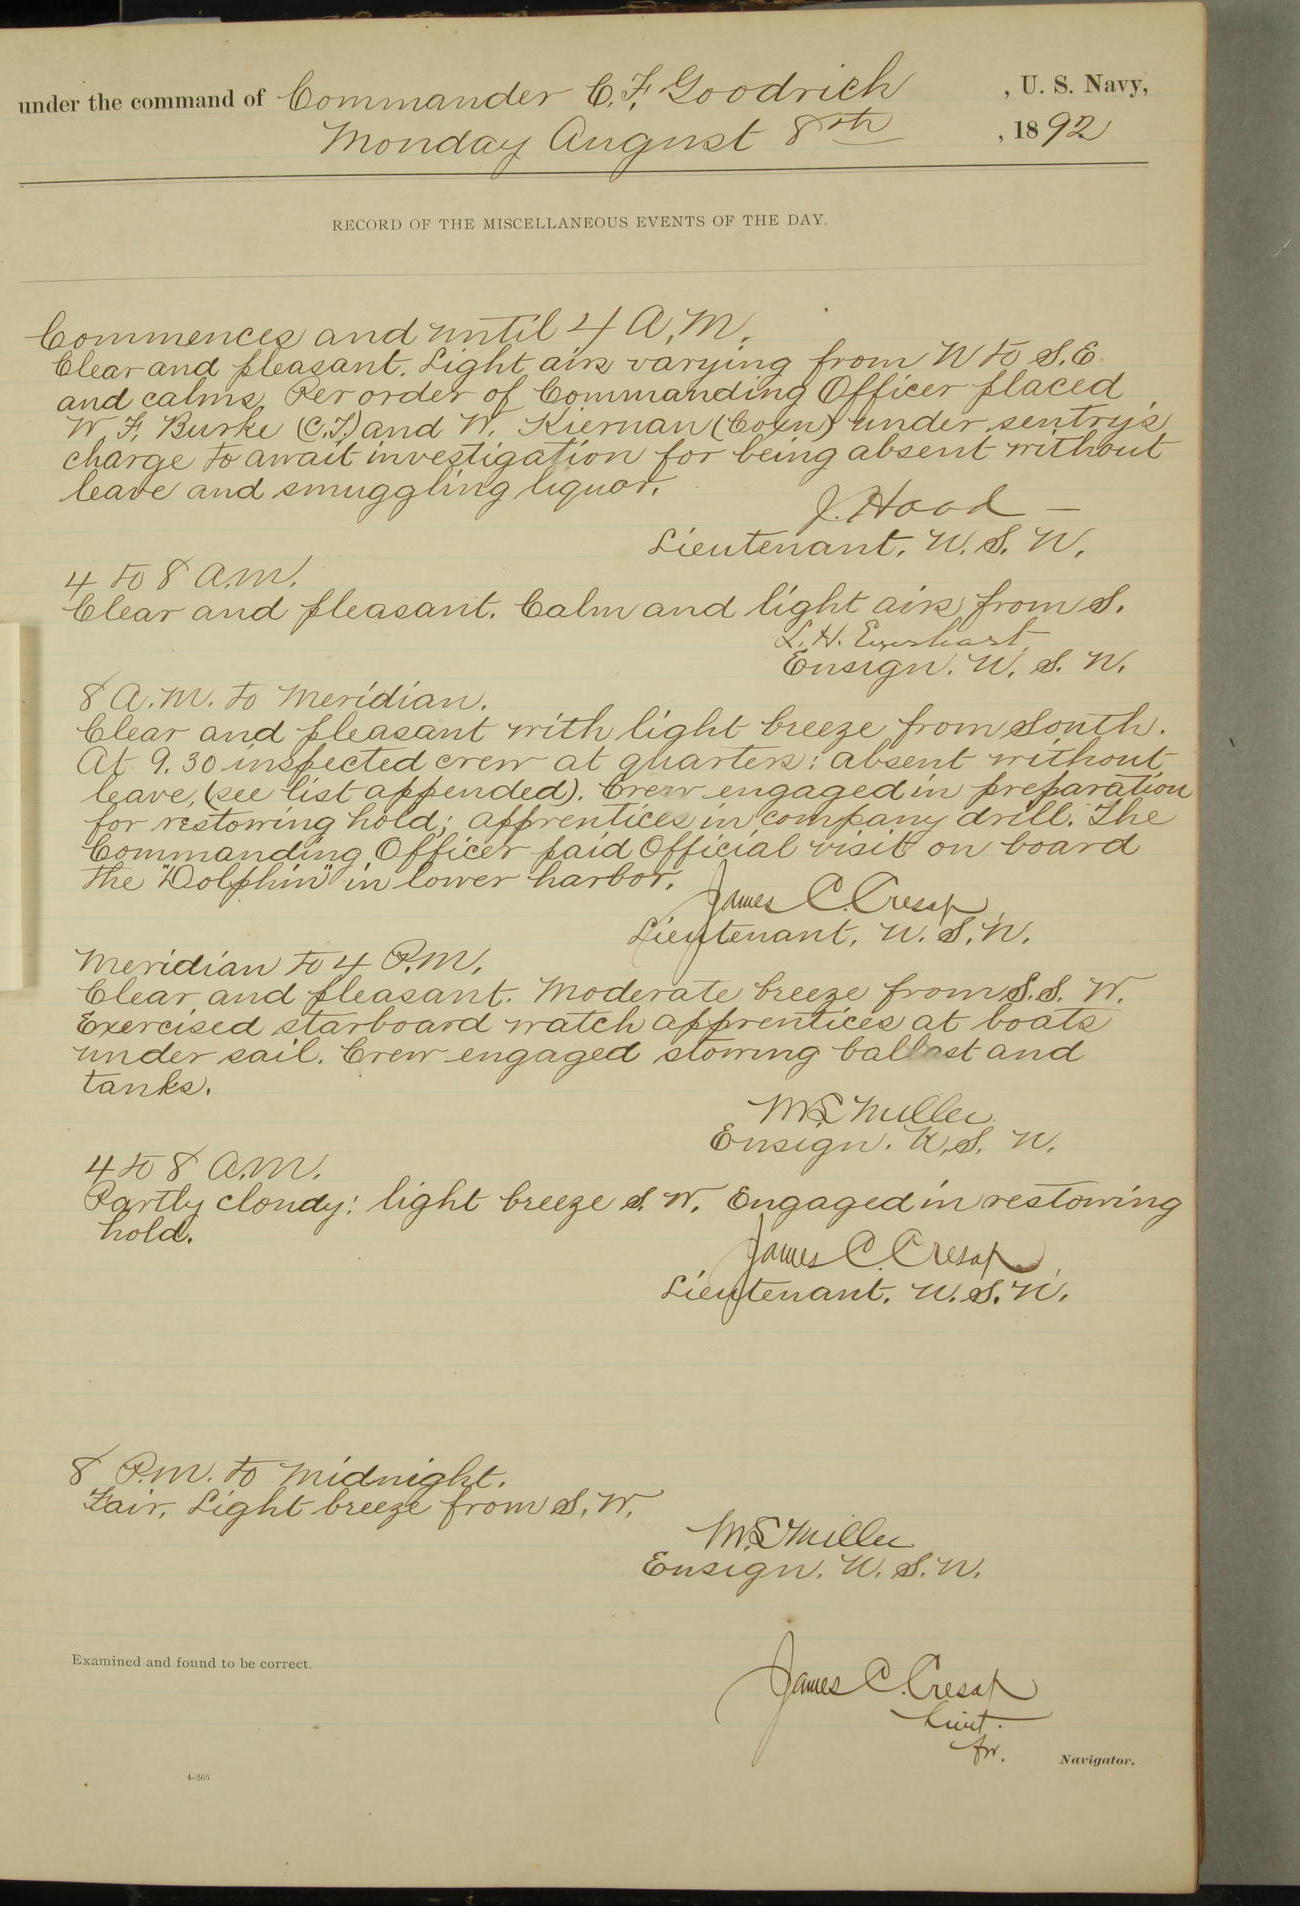 under the command of Commander C. F. Goodrich, U. S. Navy,
Monday August 8th, 1892
RECORD OF THE MISCELLANEOUS EVENTS OF THE DAY.
Commences and until 4 A.M.
Clear and pleasant. Light airs varying from W to S.E.
and calms. Per order of Commanding Officer placed
W. F. Burke (C.T.) and W. Kiernan (Coxn) under sentry's
charge to await investigation for being absent without
leave and smuggling liquor.
J. Hood
Lieutenant, U. S. N.
4 to 8 A.M.
Clear and pleasant. Calm and light airs from S.
L. H. Everhart
Ensign. U. S. N.
8 A.M. to Meridian.
Clear and pleasant with light breeze from South.
At 9.30 inspected crew at quarters: absent without
leave, (see list appended). Crew engaged in preparation
for restowing hold; apprentices in company drill. The
Commanding Officer paid Official visit on board
the "Dolphin" in lower harbor.
James C. Cresap
Lieutenant, U. S. N.
Meridian to 4 P.M.
Clear and pleasant. Moderate breeze from S.S.W.
Exercised starboard watch apprentices at boats
under sail. Crew engaged stowing ballast and
tanks.
Miller
Ensign. U. S. N.
4 to 8 A.M.
Partly cloudy: light breeze S.W. Engaged in restowing
hold.
James C. Cresap
Lieutenant. U. S. N.
8 P.M. to Midnight.
Fair. Light breeze from S.W.
Miller
Ensign. U. S. N.
Examined and found to be correct.
James C. Cresap
Lieut.
for. Navigator.
4-265